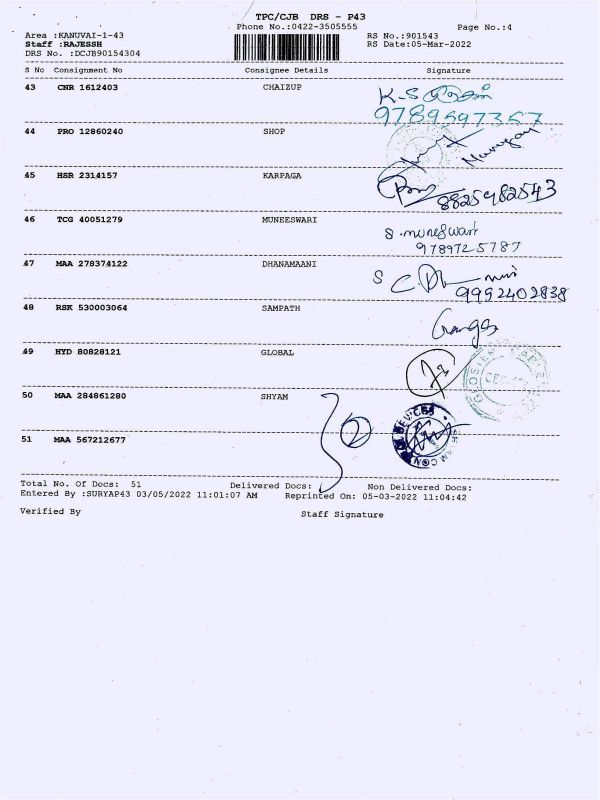 TPC/CJB DRS - P43
Phone No.:0422-3505555
Page No.:4
Area :KANUVAI-1-43
RS No.:901543
Staff :RAJESSH
RS Date:05-Mar-2022
DRS No. :DCJB90154304
S No Consignment No Consignee Details Signature
43 CNR 1612403 CHAIZUP
K.S
9789597357
44 PRO 12860240 SHOP
Murugan
45 HSR 2314157 KARPAGA
8825982543
46 TCG 40051279 MUNEESWARI
S.muneswari
9789725787
47 MAA 278374122 DHANAMAANI
9952402838
48 RSK 530003064 SAMPATH
49 HYD 80828121 GLOBAL
50 MAA 284861280 SHYAM
2
51 MAA 567212677
Total No. Of Docs: 51 Delivered Docs: Non Delivered Docs:
Entered By :SURYAP43 03/05/2022 11:01:07 AM Reprinted On: 05-03-2022 11:04:42
Verified By Staff Signature